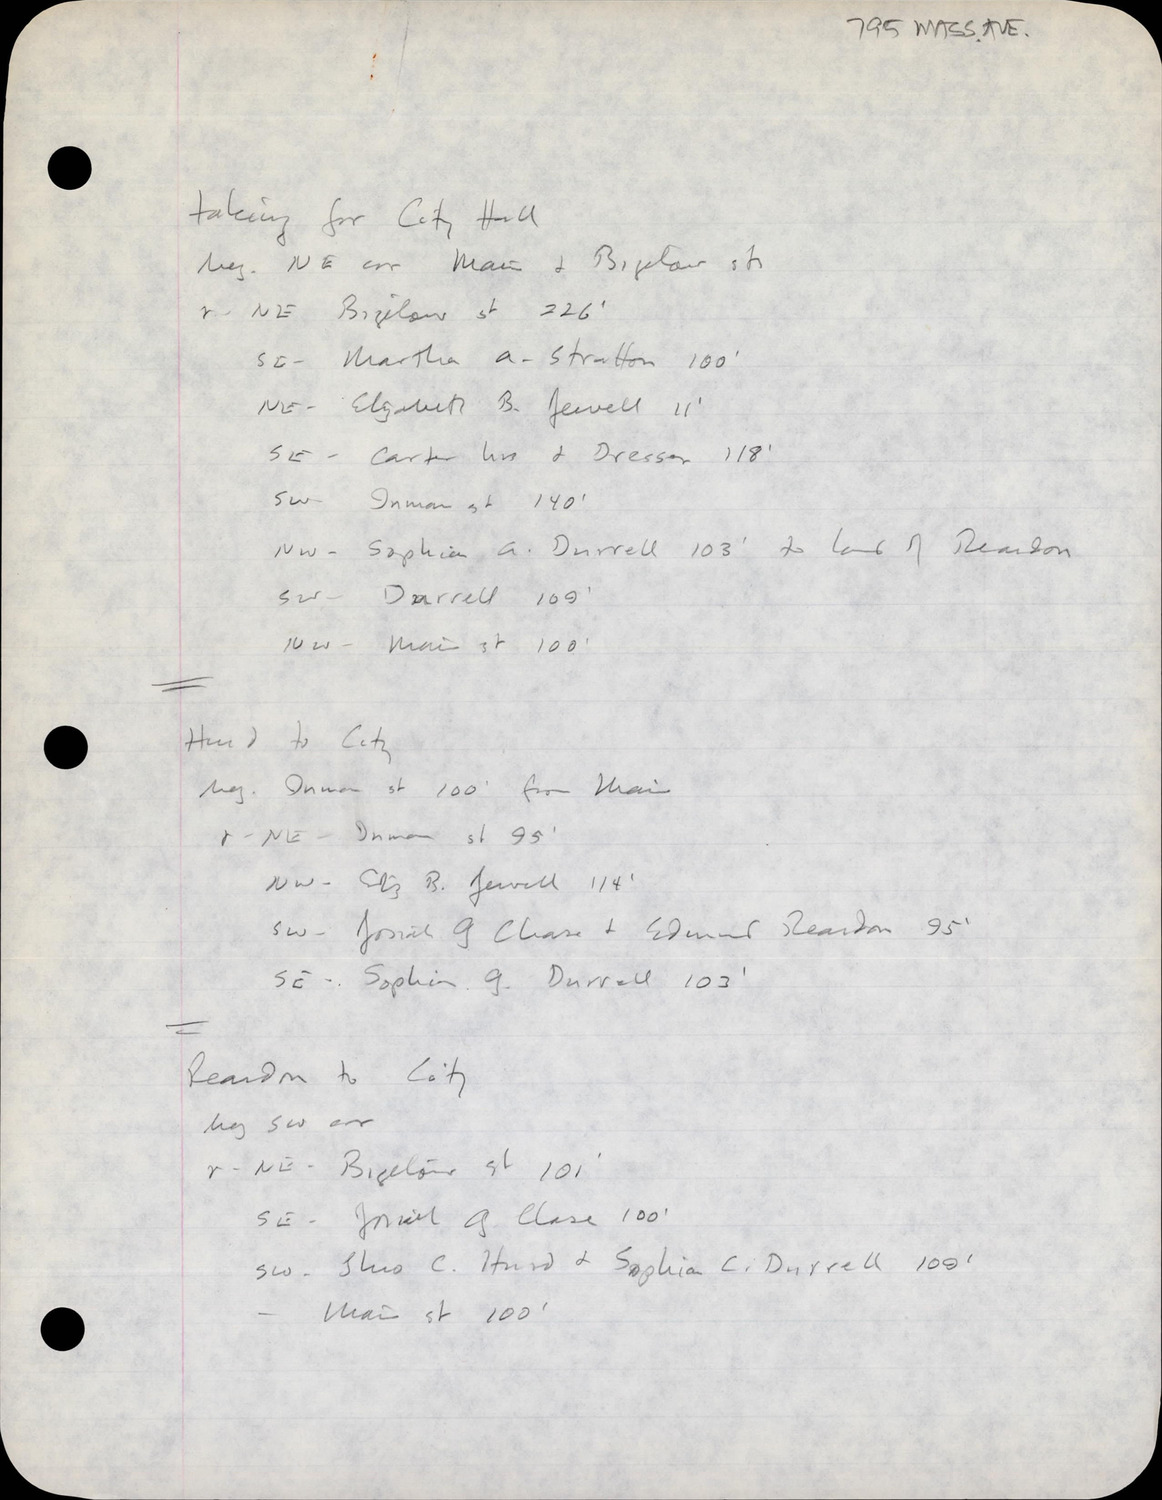 795 MASS. AVE.
taking for City Hall
beg. NE cor Main & Bigelow sts
r - NE Bigelow st 226'
SE - Martha A. Stratton 100'
NE - Elizabeth B. Jewell 11'
SE - Carter hrs & Dresser 118'
SW - Inman st 140'
NW - Sophia G. Durrell 103' to land of Reardon
SW - Durrell 109'
NW - Main st 100'
Hurd to City
beg. Inman st 100' from Main
r - NE - Inman st 95'
NW - Eliz B. Jewell 114'
SW - Josiah G Chase & Edmund Reardon 95'
SE - Sophia G. Durrell 103'
Reardon to City
beg SW cor
r - NE - Bigelow st 101'
SE - Josiah G Chase 100'
SW - Theo C. Hurd & Sophia C. Durrell 109'
- Main st 100'